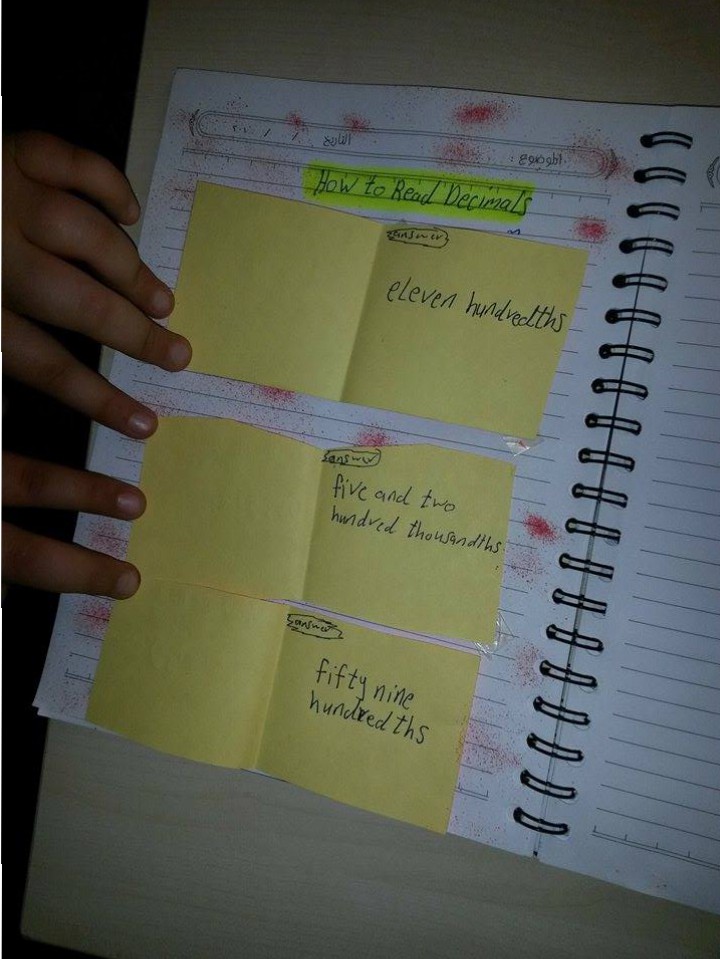 How to Read Decimals
answer
eleven hundredths
answer
five and two
hundred thousandths
answer
fifty nine
hundredths